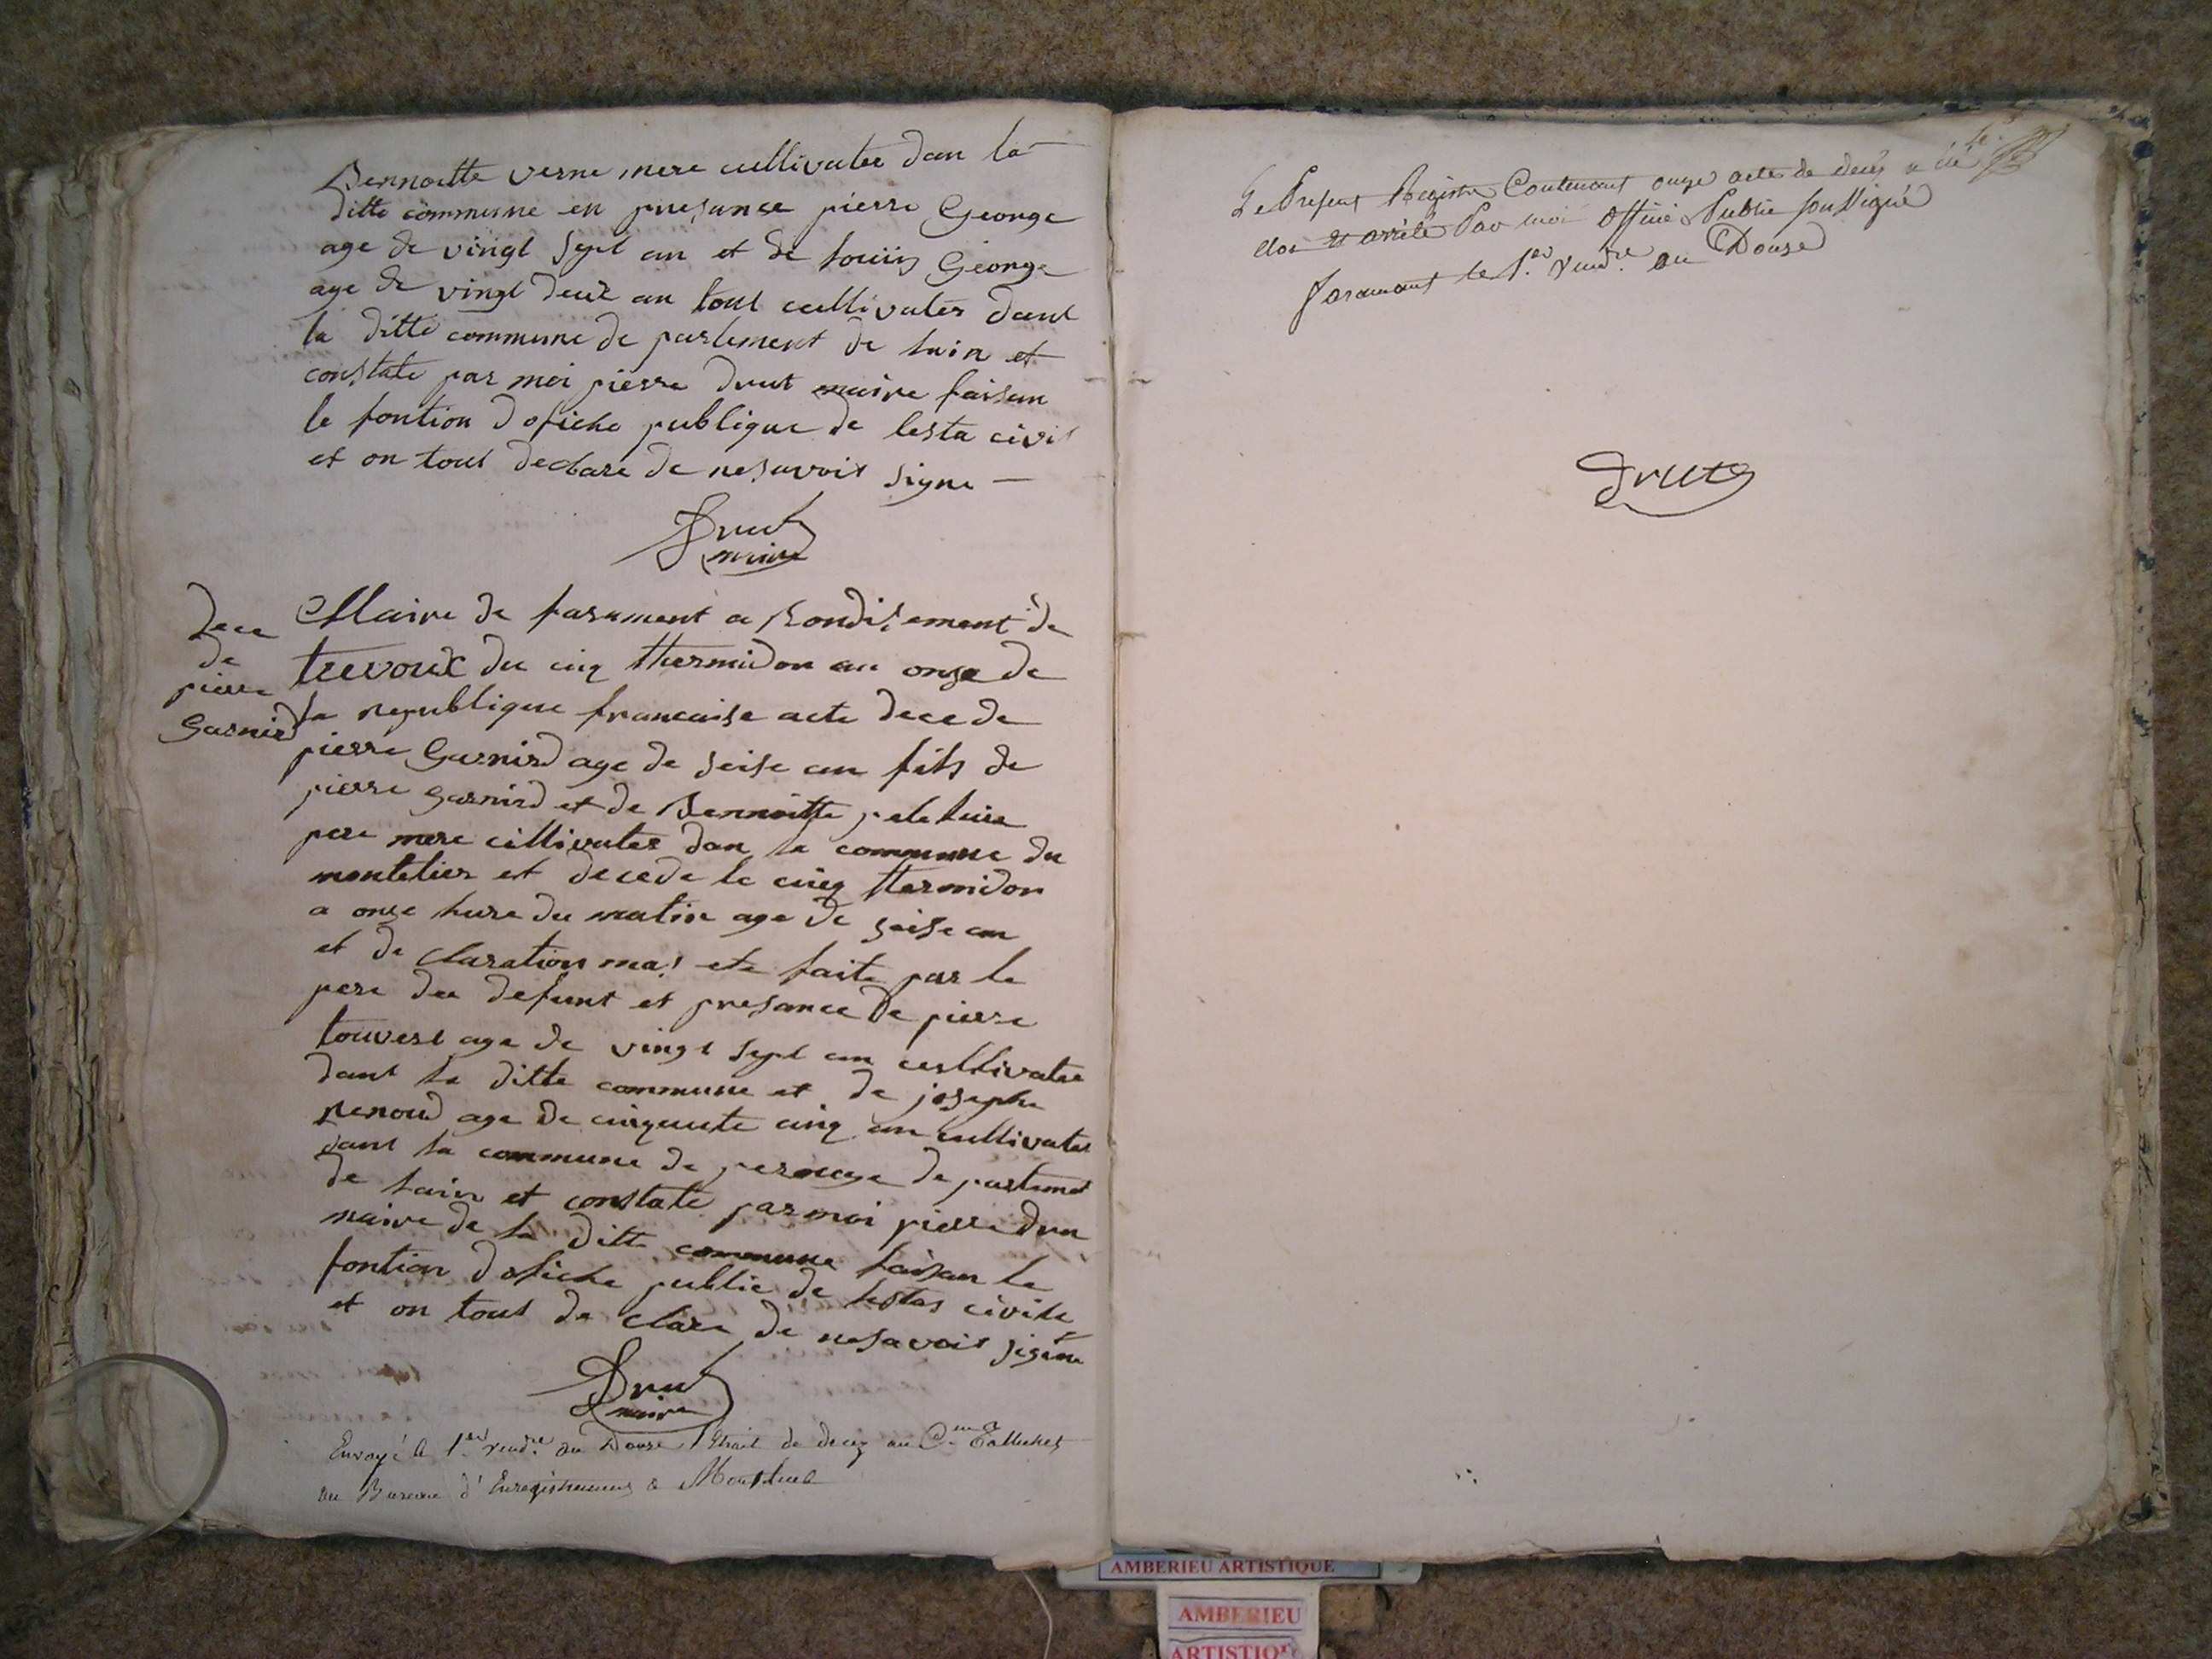 Bennoitte verne mere cultivater dan la
ditte commune en presance pierre George
age de vingt sept an et de louiis George
age de vingt deux an tout cultivater dant
la ditte commune de partement de lain et
constate par moi pierre drut maire faisan
le fontion d ofiche publique de lesta civil
et on tout declare de nesavoir signe
Drut
maire
Dece
de
pierre
Garnird
Maire de farament a Rondisement de
trevoux du cinq thermidor an onze de
la republique francaise acte decede
pierre Garnird age de seise an fils de
pierre garnird et de Bennoitte
pere mere cultivater dan la commune du
montelier et decede le cinq termidor
a onze hure du matin age de seise an
et de claration mas ete faite par le
pere du defunt et presance de pierre
touvert age de vingt sept an cultivater
dant la ditte commune et de josephe
Renoud age de cinquente cinq an cultivater
dant la commune de de partement
de lain et constate par moi pierre dru
maire de la ditte commune faisan le
fontion d ofiche public de lestas civile
et on tout de clare de nesavoir signe
Drut
maire
Envoyé le 1er vendre an Douze Etrait de decez au
au Bureau d'Enregistrement a Montluel
Le Present Registre Contenant onze actes de deces a été
clos et arrêté Par moi officié Public soussigné
faramant le 1er vendre an Douze
Drut
AMBERIEU ARTISTIQUE
AMBERIEU
ARTISTIQUE